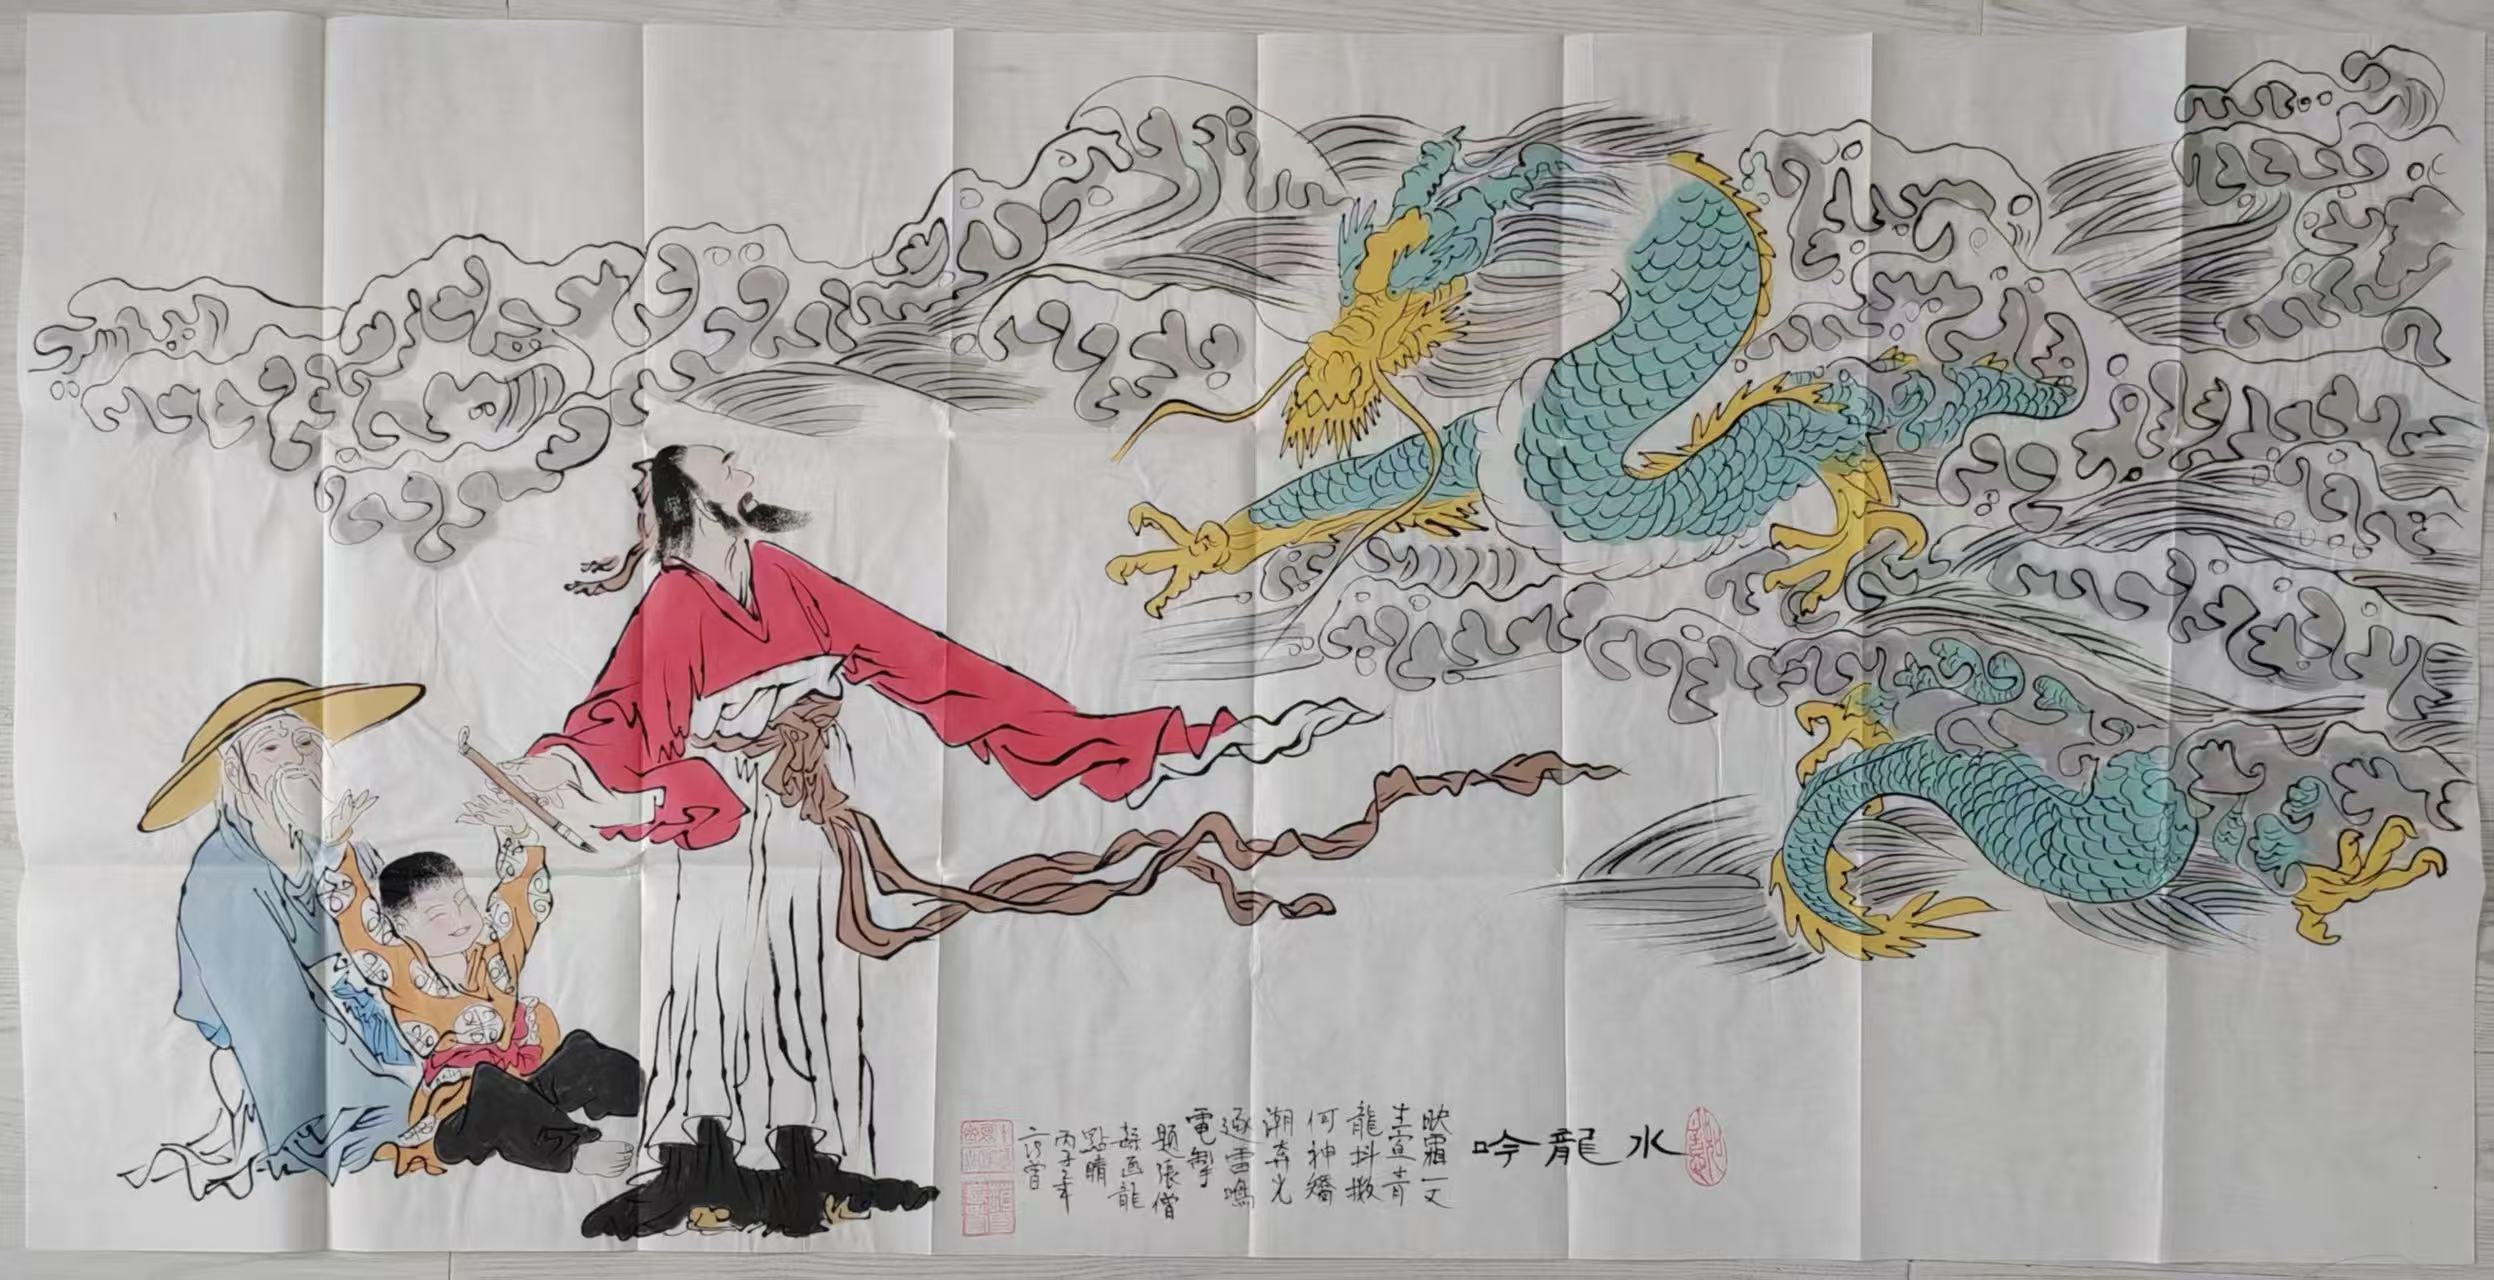 水龍吟
映霜一文
生宣青
龍抖擻
何神矯
潮奔光
逐雷鳴
電掣
題張僧
繇画龍
點睛
丙子年
范曾